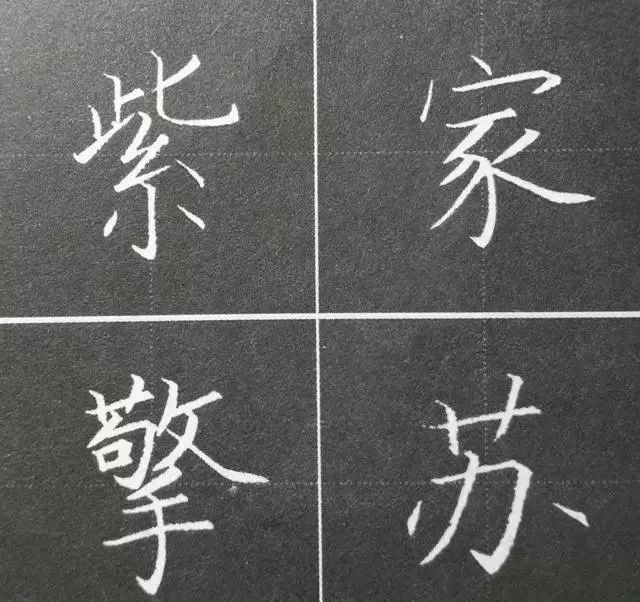 紫家
擎苏